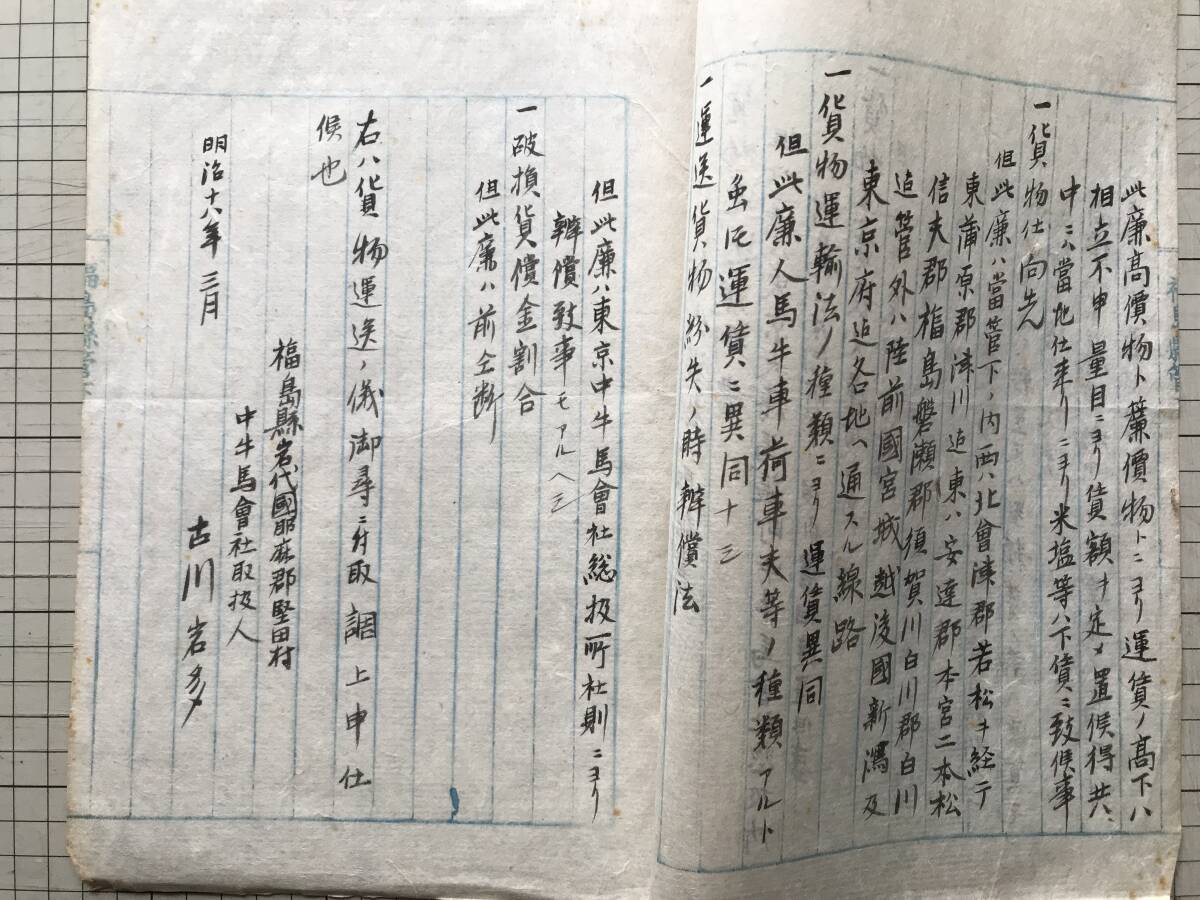 此廉高價物ト蓙價物トニヨリ運賃ノ高下ハ
相立不申量目ニヨリ賃額ヲ定メ置候得共
中ニハ當地仕来リニヨリ米塩等ハ下賃ニ致候事
一貨物仕向先
但此廉ハ當管下ノ内西ハ北會津郡若松ヲ経テ
東蒲原郡津川迠東ハ安達郡本宮二本松
信夫郡福島磐瀬郡須賀川白川郡白川
迠管外ハ陸前國宮城越後國新潟及
東京府迠各地ヘ通スル線路
一貨物運輸法ノ種類ニヨリ運賃異同
但此廉人馬牛車荷車夫等ノ種類アルト
虽氏運賃ニ異同ナシ
一運送貨物紛失ノ時辨償法
但此廉ハ東京中牛馬會社総扱所社則ニヨリ
辨償致事モアルヘシ
一破損貨償金割合
但此廉ハ前仝断
右ハ貨物運送ノ儀御尋ニ付取調上申仕
候也
福島縣岩代國耶麻郡堅田村
中牛馬會社取扱人
明治十八年三月
古川岩多
福島縣管下